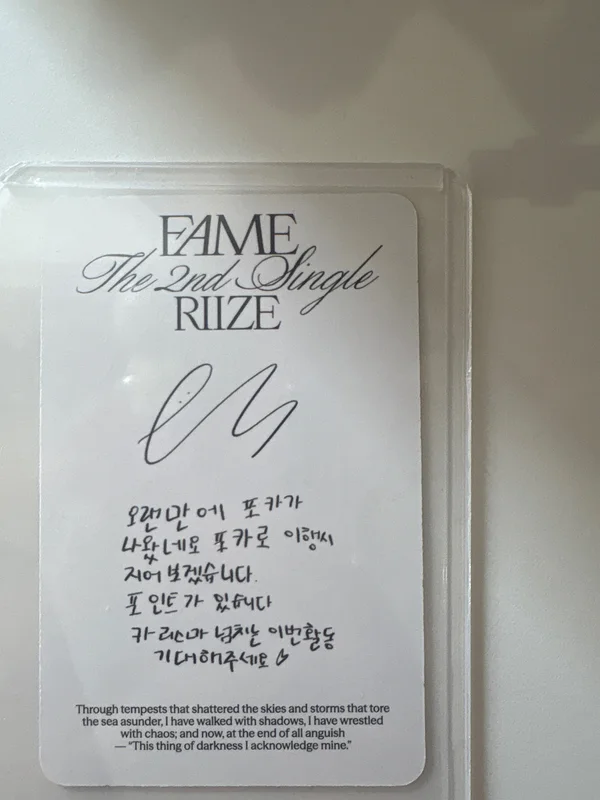 FAME
The 2nd Single
RIIZE
오랜만에 포카가
나왔네요 포카로 이행시
지어 보겠습니다.
포인트가 있습니다
카리스마 넘치는 이번활동
기대해주세요
Through tempests that shattered the skies and storms that tore
the sea asunder, I have walked with shadows, I have wrestled
with chaos; and now, at the end of all anguish
— “This thing of darkness I acknowledge mine.”